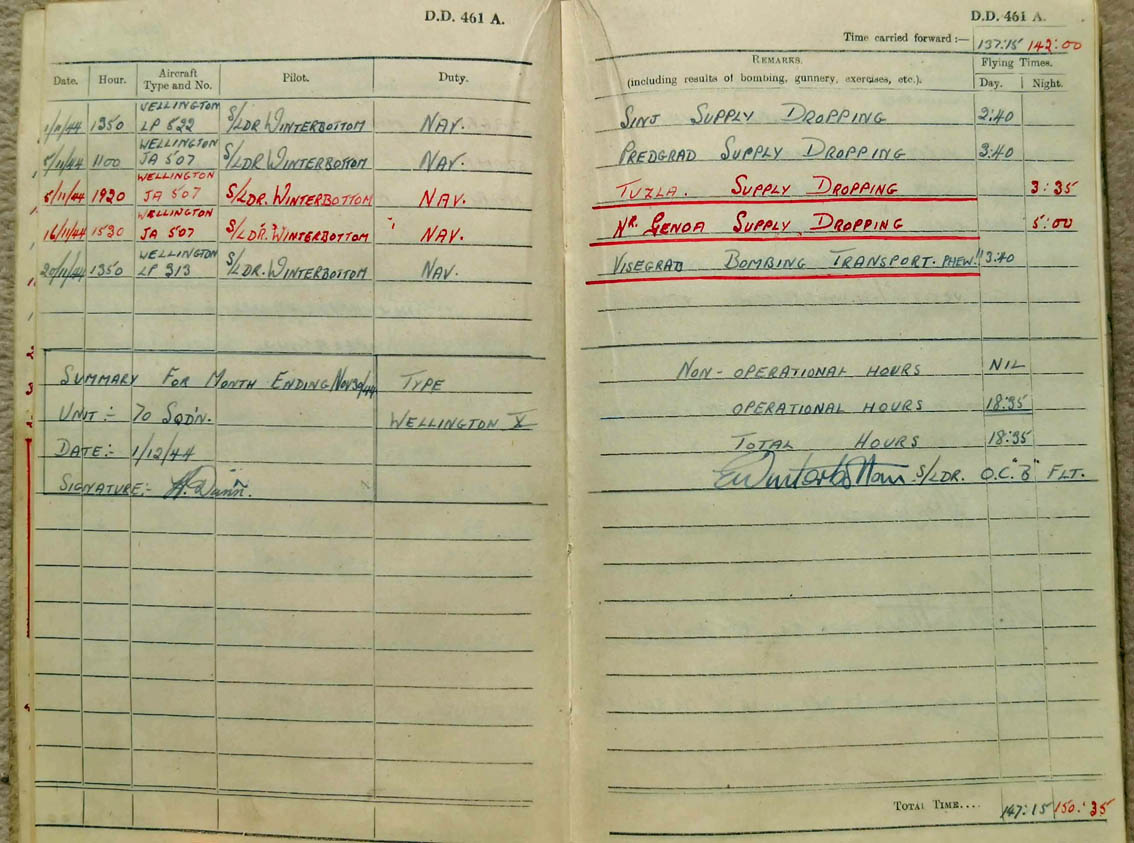 D.D. 461 A.
Date. Hour. Aircraft Type and No. Pilot. Duty.
1/11/44 1350 WELLINGTON LP S/LDR WINTERBOTTOM NAV.
1100 WELLINGTON JA 507 S/LDR WINTERBOTTOM NAV.
5/11/44 1920 WELLINGTON JA 507 S/LDR. WINTERBOTTOM NAV.
16/11/44 1530 WELLINGTON JA 507 S/LDR. WINTERBOTTOM " NAV.
20/11/44 1350 WELLINGTON LP 313 S/LDR. WINTERBOTTOM NAV.
SUMMARY FOR MONTH ENDING NOV 30/44 TYPE
UNIT :- 70 SQD'N. WELLINGTON X
DATE:- 1/12/44
SIGNATURE:- H. Dunn.
D.D. 461 A.
Time carried forward :— 137:15 142:00
REMARKS. (including results of bombing, gunnery, exercises, etc.). Flying Times.
Day. Night.
SINJ SUPPLY DROPPING 2:40
PREDGRAD SUPPLY DROPPING 3:40
TUZLA. SUPPLY DROPPING 3:35
NR. GENOA SUPPLY DROPPING 5:00
VISEGRAD BOMBING TRANSPORT. PHEW!! 3:40
NON - OPERATIONAL HOURS NIL
OPERATIONAL HOURS 18:35
TOTAL HOURS 18:35
EWinterbottom S/LDR. O.C. "B" FLT.
TOTAL TIME.... 147:15 150:35